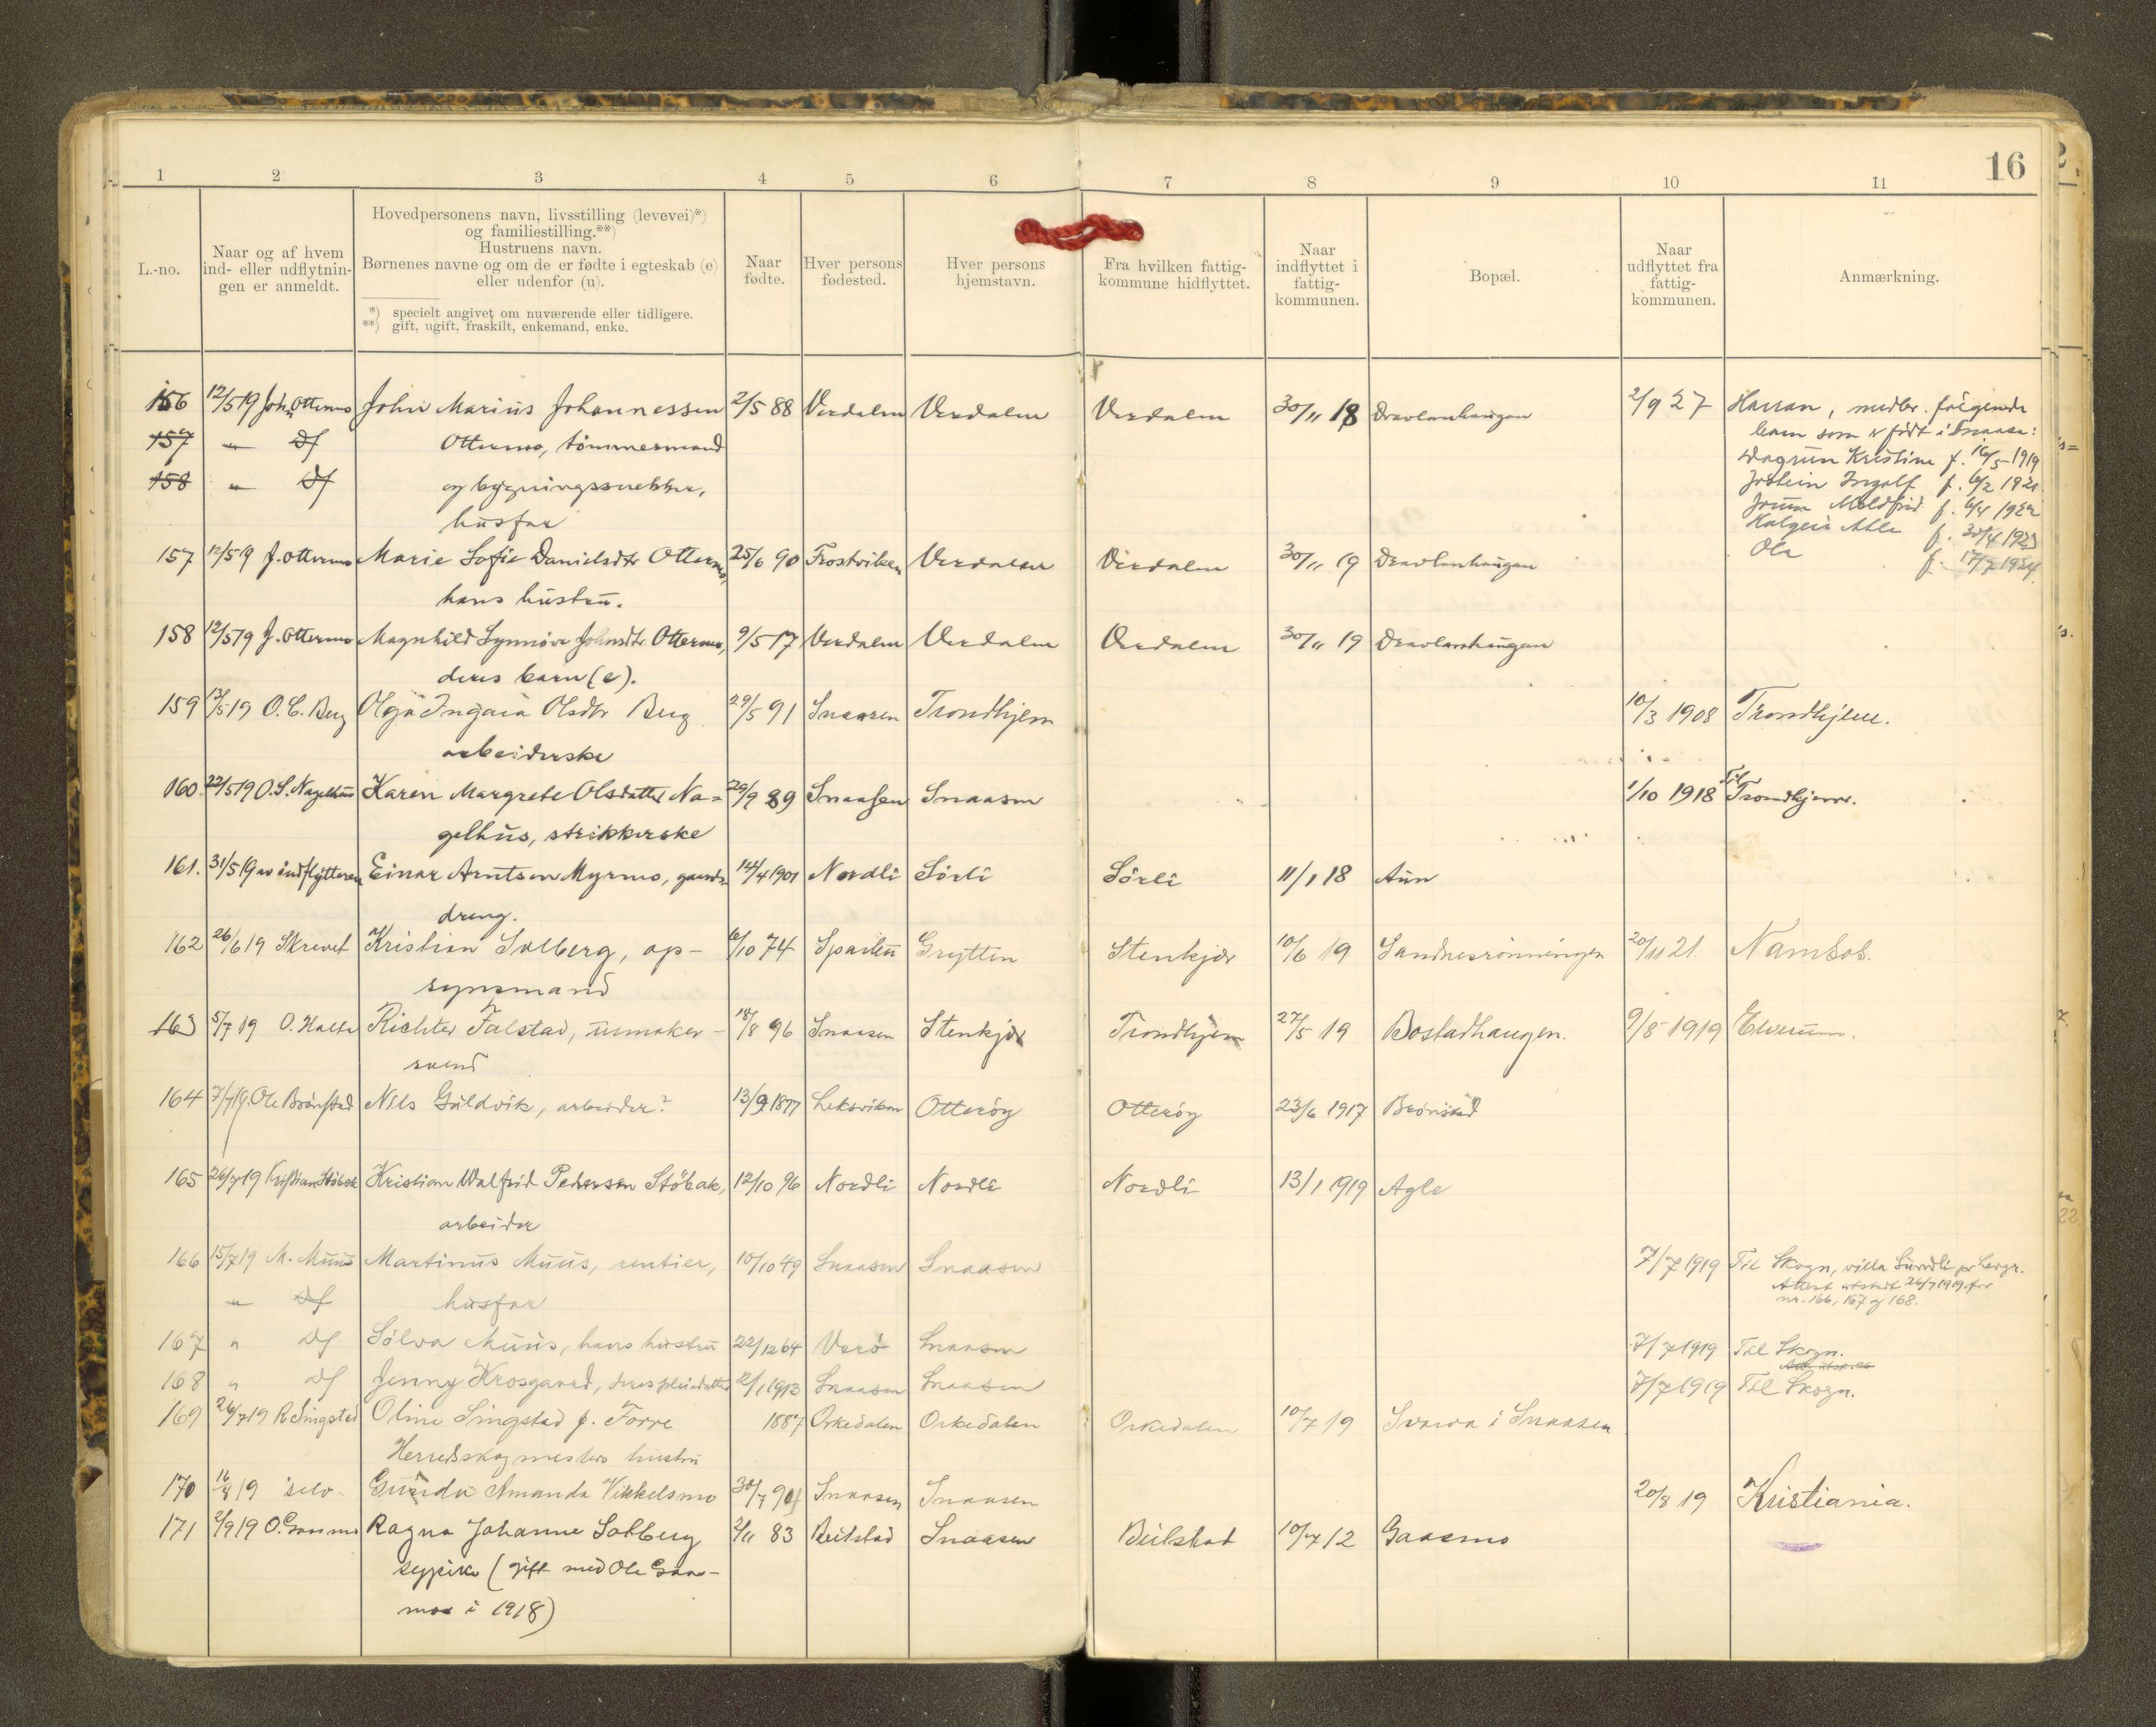 16
1 2 3 4 5 6 7 8 9 10 11
L.-no.
Naar og af hvem
ind- eller udflytnin-
gen er anmeldt.
Hovedpersonens navn, livsstilling (levevei)*)
og familiestilling.**)
Hustruens navn.
Børnenes navne og om de er fødte i egteskab (e)
eller udenfor (u).
*) specielt angivet om nuværende eller tidligere.
**) gift, ugift, fraskilt, enkemand, enke.
Naar
fødte.
Hver persons
fødested.
Hver persons
hjemstavn.
Fra hvilken fattig-
kommune hidflyttet.
Naar
indflyttet i
fattig-
kommunen.
Bopæl.
Naar
udflyttet fra
fattig-
kommunen.
Anmærkning.
156 12/5 19 John Ottermo John Marius Johannessen 2/5 88 Verdalen Verdalen Verdalen 30/11 18 Dravlanhaugan 2/9 27 Harran, medbr. følgende
157 " Df Ottermo, tømmermand barn som er født i Snaasa:
158 " Df og bygningssnekker, Dagrun Kristine f. 16/5-1919
husfar Jostein Ingolf f. 6/2 1921
Jorun Moldfrid f. 6/4 1922
f. 30/4 1923
157 12/5 19 J. Ottermo Marie Sofie Danielsdtr Ottermo, 25/6 90 Frostviken Verdalen Verdalen 30/11 19 Dravlanhaugan Ola f. 17/7 1924
hans hustru.
158 12/5 19 J. Ottermo Magnhild Synnøve Johnsdtr Ottermo, 9/5 17 Verdalen Verdalen Verdalen 30/11 19 Dravlanhaugan
deres barn (e).
159 13/5 19 O. C. Berg Olga Ingara Olsdtr Berg 29/5 91 Snaasen Trondhjem 10/3 1908 Trondhjem.
arbeiderske
160 22/5 19 O. S. Nagelhus Karen Margrete Olsdatter Na= 29/9 89 Snaasen Snaasen 1/10 1918 Til Trondhjem.
gelhus, strikkerske
161. 31/5 19 av indflytteren Einar Arntsen Myrmo, gaards- 14/4 1901 Nordli Sörli Sörli 11/1 18 Aun
dreng.
162 26/6 19 Skrevet Kristian Solberg, op- 6/10 74 Sparbu Grytten Stenkjær 10/6 19 Sandnesrønningen 20/11 21 Namsos.
synsmand
163 5/7 19 O. Richter Falstad, urmaker- 18/8 96 Snaasen Stenkjær Trondhjem 27/5 19 Bostadhaugen. 9/8 1919 Elverum.
svend
164 7/7 19. Ole Brønstad Nils Guldvik, arbeider? 13/9 1877 Leksviken Otterøy Otterøy 23/6 1917 Brønstad
165 26/7 19 Kristian Støbak Kristian Walfrid Pedersen Støbak, 12/10 96 Nordli Nordli Nordli 13/1 1919 Agle
arbeider
166 15/7 19 M. Muus Martinus Muus, rentier, 10/10 49 Snaasen Snaasen 7/7 1919 Til Skogn, villa Sundli pr Levgr.
" Df husfar Attest utstedt 26/7 1919 for
nr. 166, 167 og 168.
167 " Df Sølva Muus, hans hustru 22/12 64 Værø Snaasen 7/7 1919 Til Skogn.
168 " Df Jenny Krosgaard, deres pleiedatter 2/1 1913 Snaasen Snaasen 7/7 1919 Til Skogn.
169 26/7 19 R Singstad Oline Singstad f. Forve 1887 Orkedalen Orkedalen Orkedalen 10/7 19 Svarva i Snaasen
Herredskogmesters hustru
170 16/8 19 selv Gunda Amanda Vikkelsmo 30/7 901 Snaasen Snaasen 20/8 19 Kristiania.
171 2/9 19 O. Gaasmo Ragna Johanne Solberg 2/11 83 Beitstad Snaasen Beitstad 10/4 12 Gaasmo
sypike (gift med Ole Gaas-
mo i 1918)